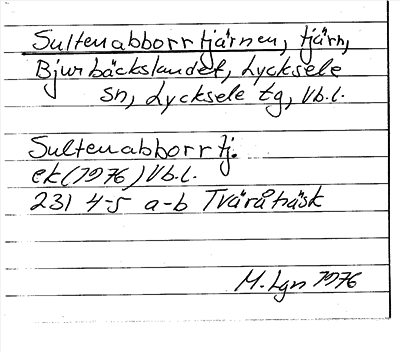 Sultenabborrtjärnen, tjärn,
Bjurbäckslandet, Lycksele
sn, Lycksele tg, Vb.l.
Sultenabborrtj.
ek (1976) Vb.l.
231 4-5 a-b Tväråträsk
M. Lgn 1976